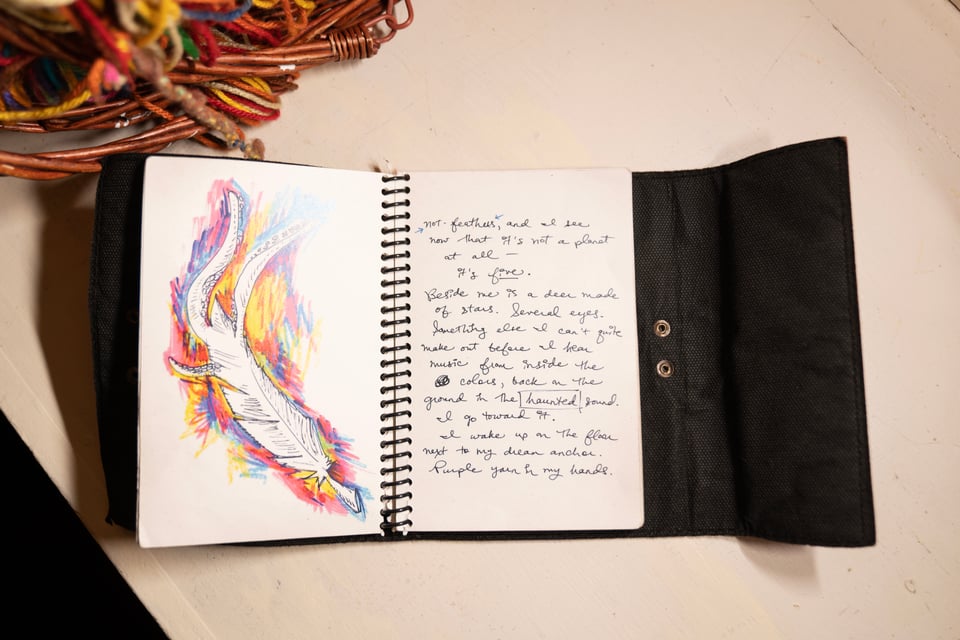 not feathers, and I see
now that it's not a planet
at all —
it's five.
Beside me is a deer made
of stars. Several eyes.
Something else I can't quite
make out before I hear
music from inside the
colors, back on the
ground in the haunted sound.
I go toward it.
I wake up on the floor
next to my dream anchor.
Purple yarn in my hands.